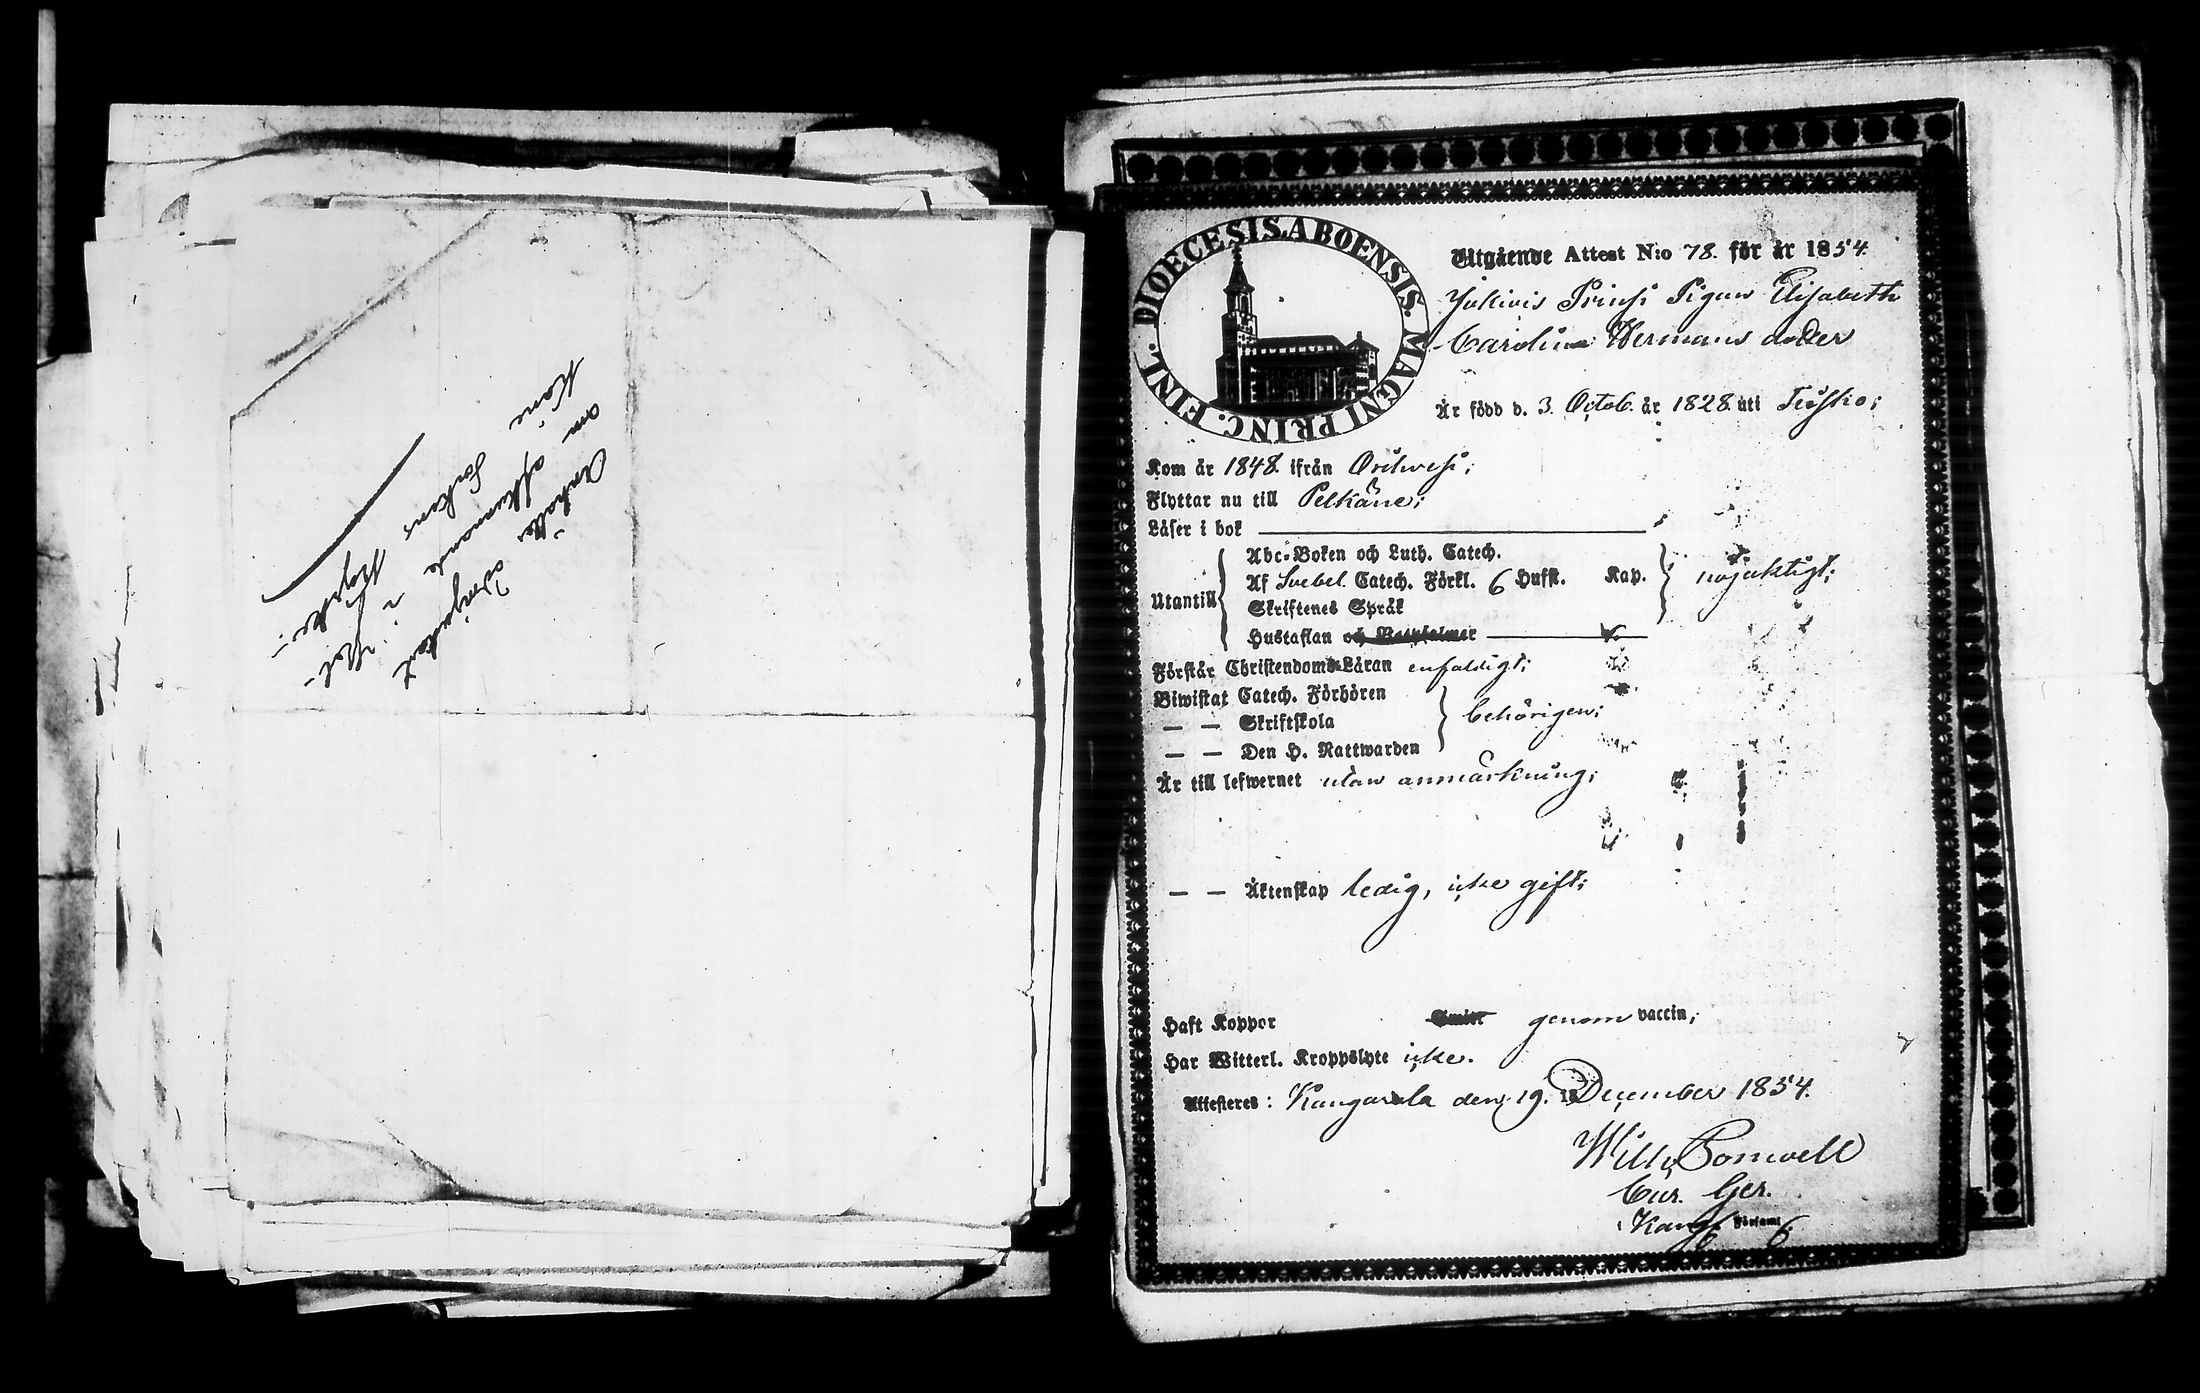 Anhålles ödmjukast
om afkunnande i Pel-
käne Sockens Kyrka:-
DIOECESIS ABOENSIS. MAGNI PRINC. FINL.
Utgående Attest N:o 78. för år 1854.
Prusi Pigan Elisabeth
Carolina Hermans dotter
Är född d. 3 Octob. år 1828. uti
Kom år 1848. ifrån Orihvesi;
Flyttar nu till Pelkäne;
Läser i bok
Utantill
Abc-Boken och Luth. Catech.
Af Svebel. Catech. Förkl. 6 Hufst. Kap.
Skriftenes Språk
Hustaflan och Botpsalmer
nöjaktigt;
Förstår Christendoms-Läran enfaldigt;
Biwistat Catech. Förhören
— — Skriftskola
— — Den H. Nattwarden
behörigen;
Är till lefwernet utan anmärkning;
— — Äktenskap ledig, icke gift;
Haft Koppor genom vaccin;
Har Witterl. Kroppslyte icke.
Attesteres: Kangasala den 19. December 1854.
Cur. Ger.
Kang. Församl.